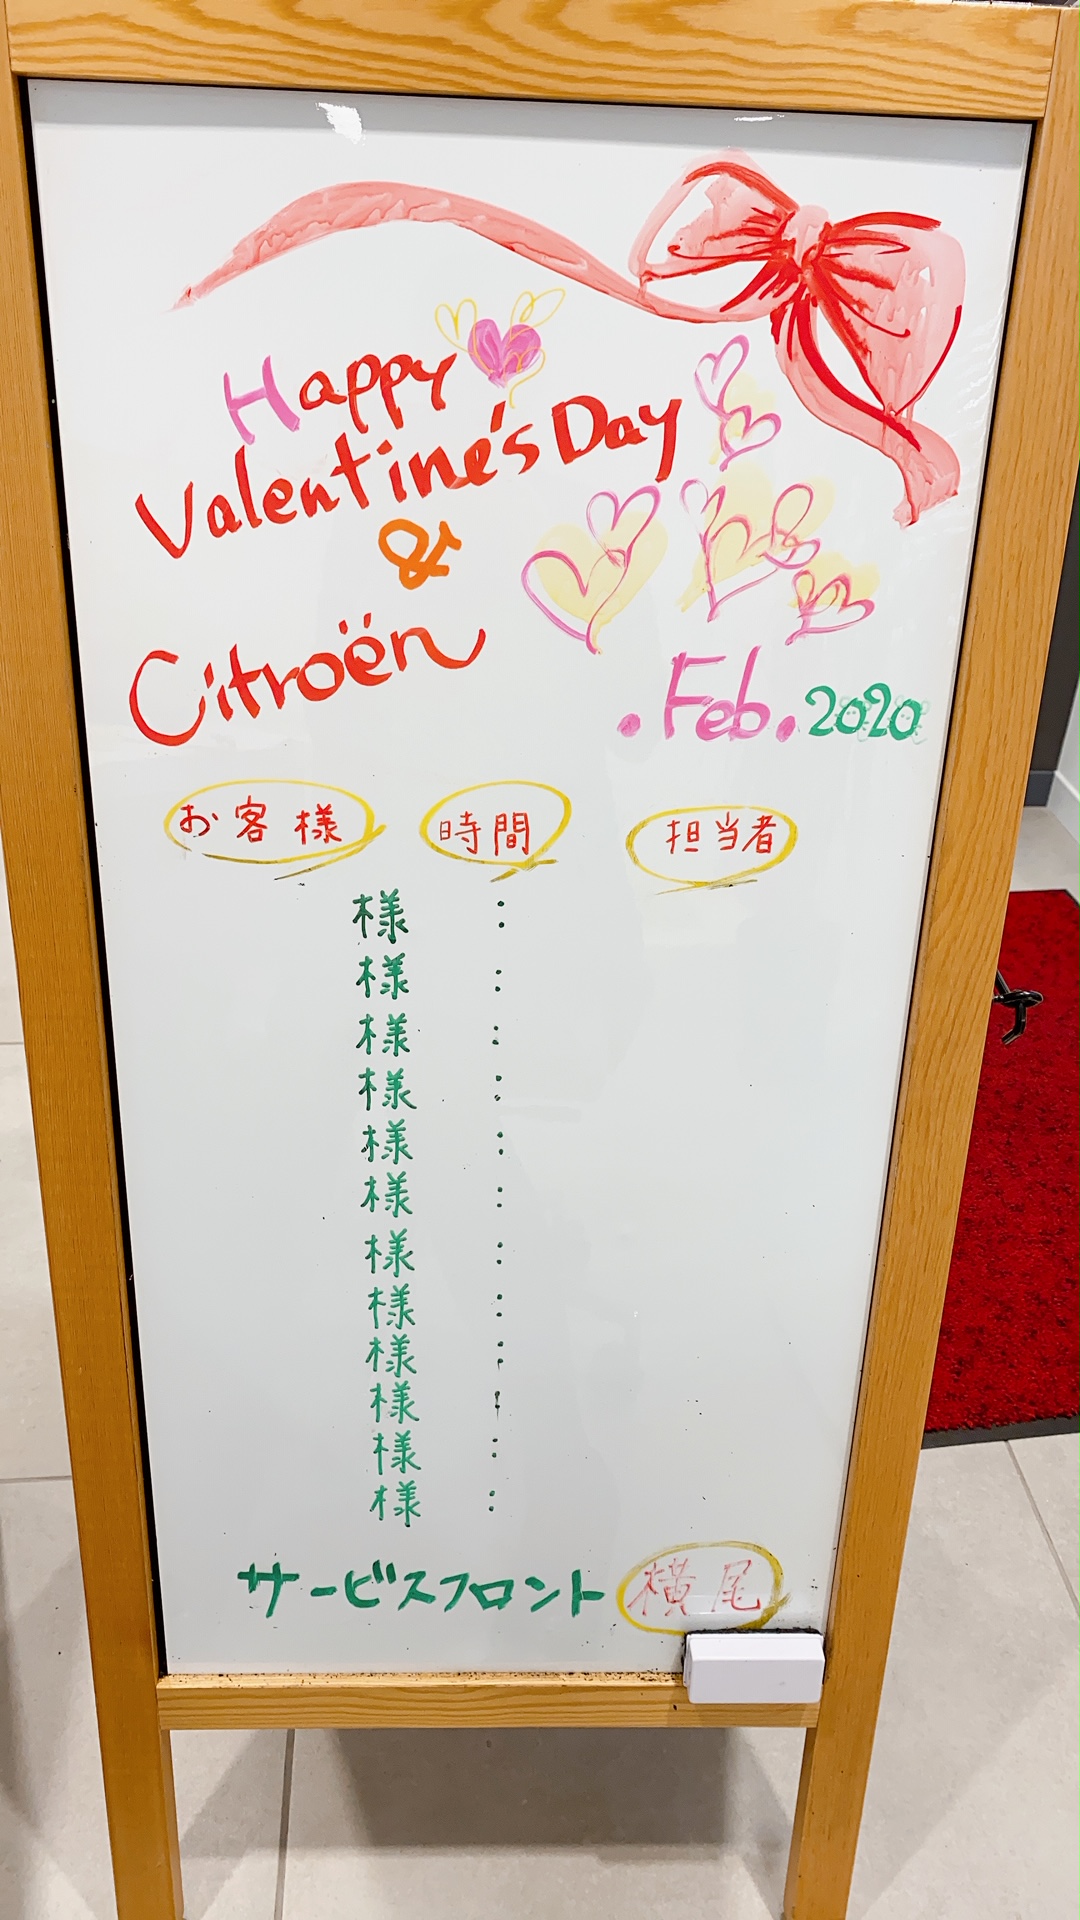 Happy
Valentine's Day
&
Citroën
.Feb.2020
お客様 時間 担当者
様 :
様 :
様 :
様 :
様 :
様 :
様 :
様 :
様 :
様 :
様 :
様 :
サービスフロント 横尾